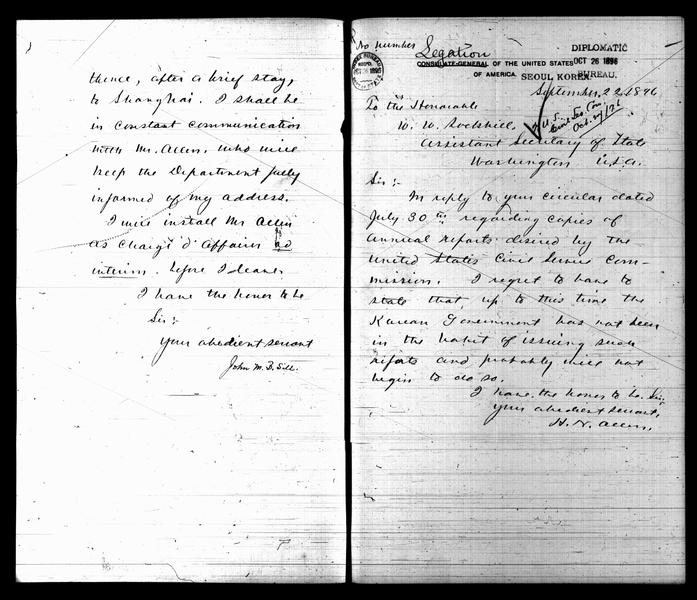 thence, after a brief stay,
to Shanghai. I shall be
in constant communication
with Mr. Allen. who will
keep the Department fully
informed of my address.
I will install Mr Allen
as Chargé d'Affaires ad
interim. before I leave.
I have the honor to be
Sir:-
your obedient servant
John M. B. Sill.
No number
Legation
CONSULATE-GENERAL OF THE UNITED STATES
OF AMERICA. SEOUL KOREA
DIPLOMATIC
OCT 26 1896
BUREAU.
September, 22, 1896
To the Honorable
W. W. Rockhill,
U.S.
Civil Ser. Com
Oct. 27/96
Assistant Secretary of State
Washington U.S.A.
Sir:-
In reply to your circular dated
July 30th regarding copies of
annual reports desired by the
United States Civil Service Com-
mission. I regret to have to
state that up to this time the
Korean Government has not been
in the habit of issuing such
reports and probably will not
begin to do so.
I have the honor to be. Sir,
your obedient servant,
H. N. Allen.